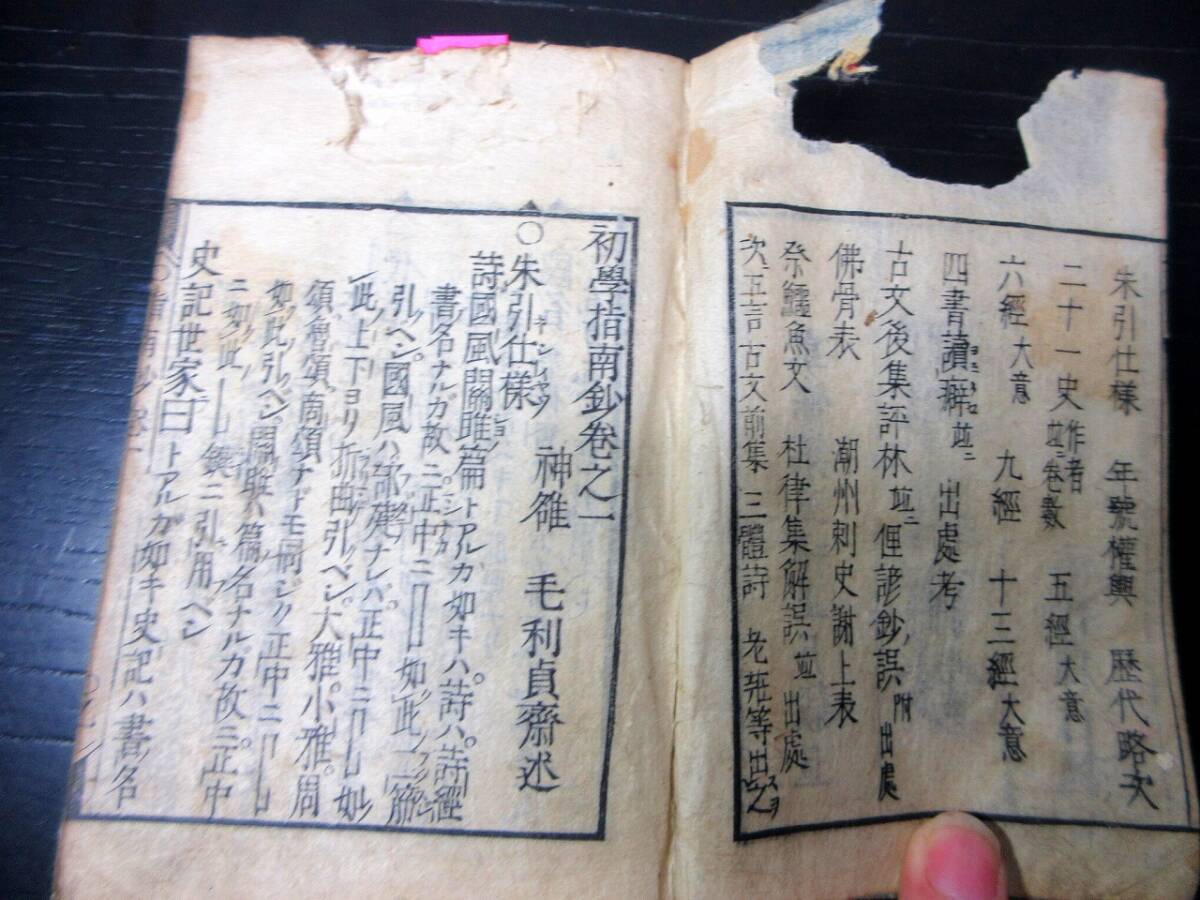 朱引仕様 年號權輿 歷代略次
二十一史作者並ニ卷數 五經大意
六經大意 九經 十三經大意
四書讀癖並ニ 出處考
古文後集評林並ニ俚諺鈔ノ誤附出處
佛骨表 潮州刺史謝上表
祭鱷魚文 杜律集解誤並出處
次五言古文前集 三體詩 老莊等出之
初學指南鈔卷之一
○朱引仕様 神雒 毛利貞齋述
詩國風關雎篇トアルカ如キハ詩ハ詩經
書名ナルガ故ニ正中ニ 如此二筋
引ヘシ國風ハ部建ナレハ正中ニ 如
此上下ヨリ折曲引ヘシ大雅小雅周
頌魯頌商頌ナドモ同ジク正中ニ
如此引ヘシ關雎ハ篇名ナルカ故ニ正中
ニ如此 鏡ニ引用ヘシ
史記世家曰トアルガ如キ史記ハ書ノ名